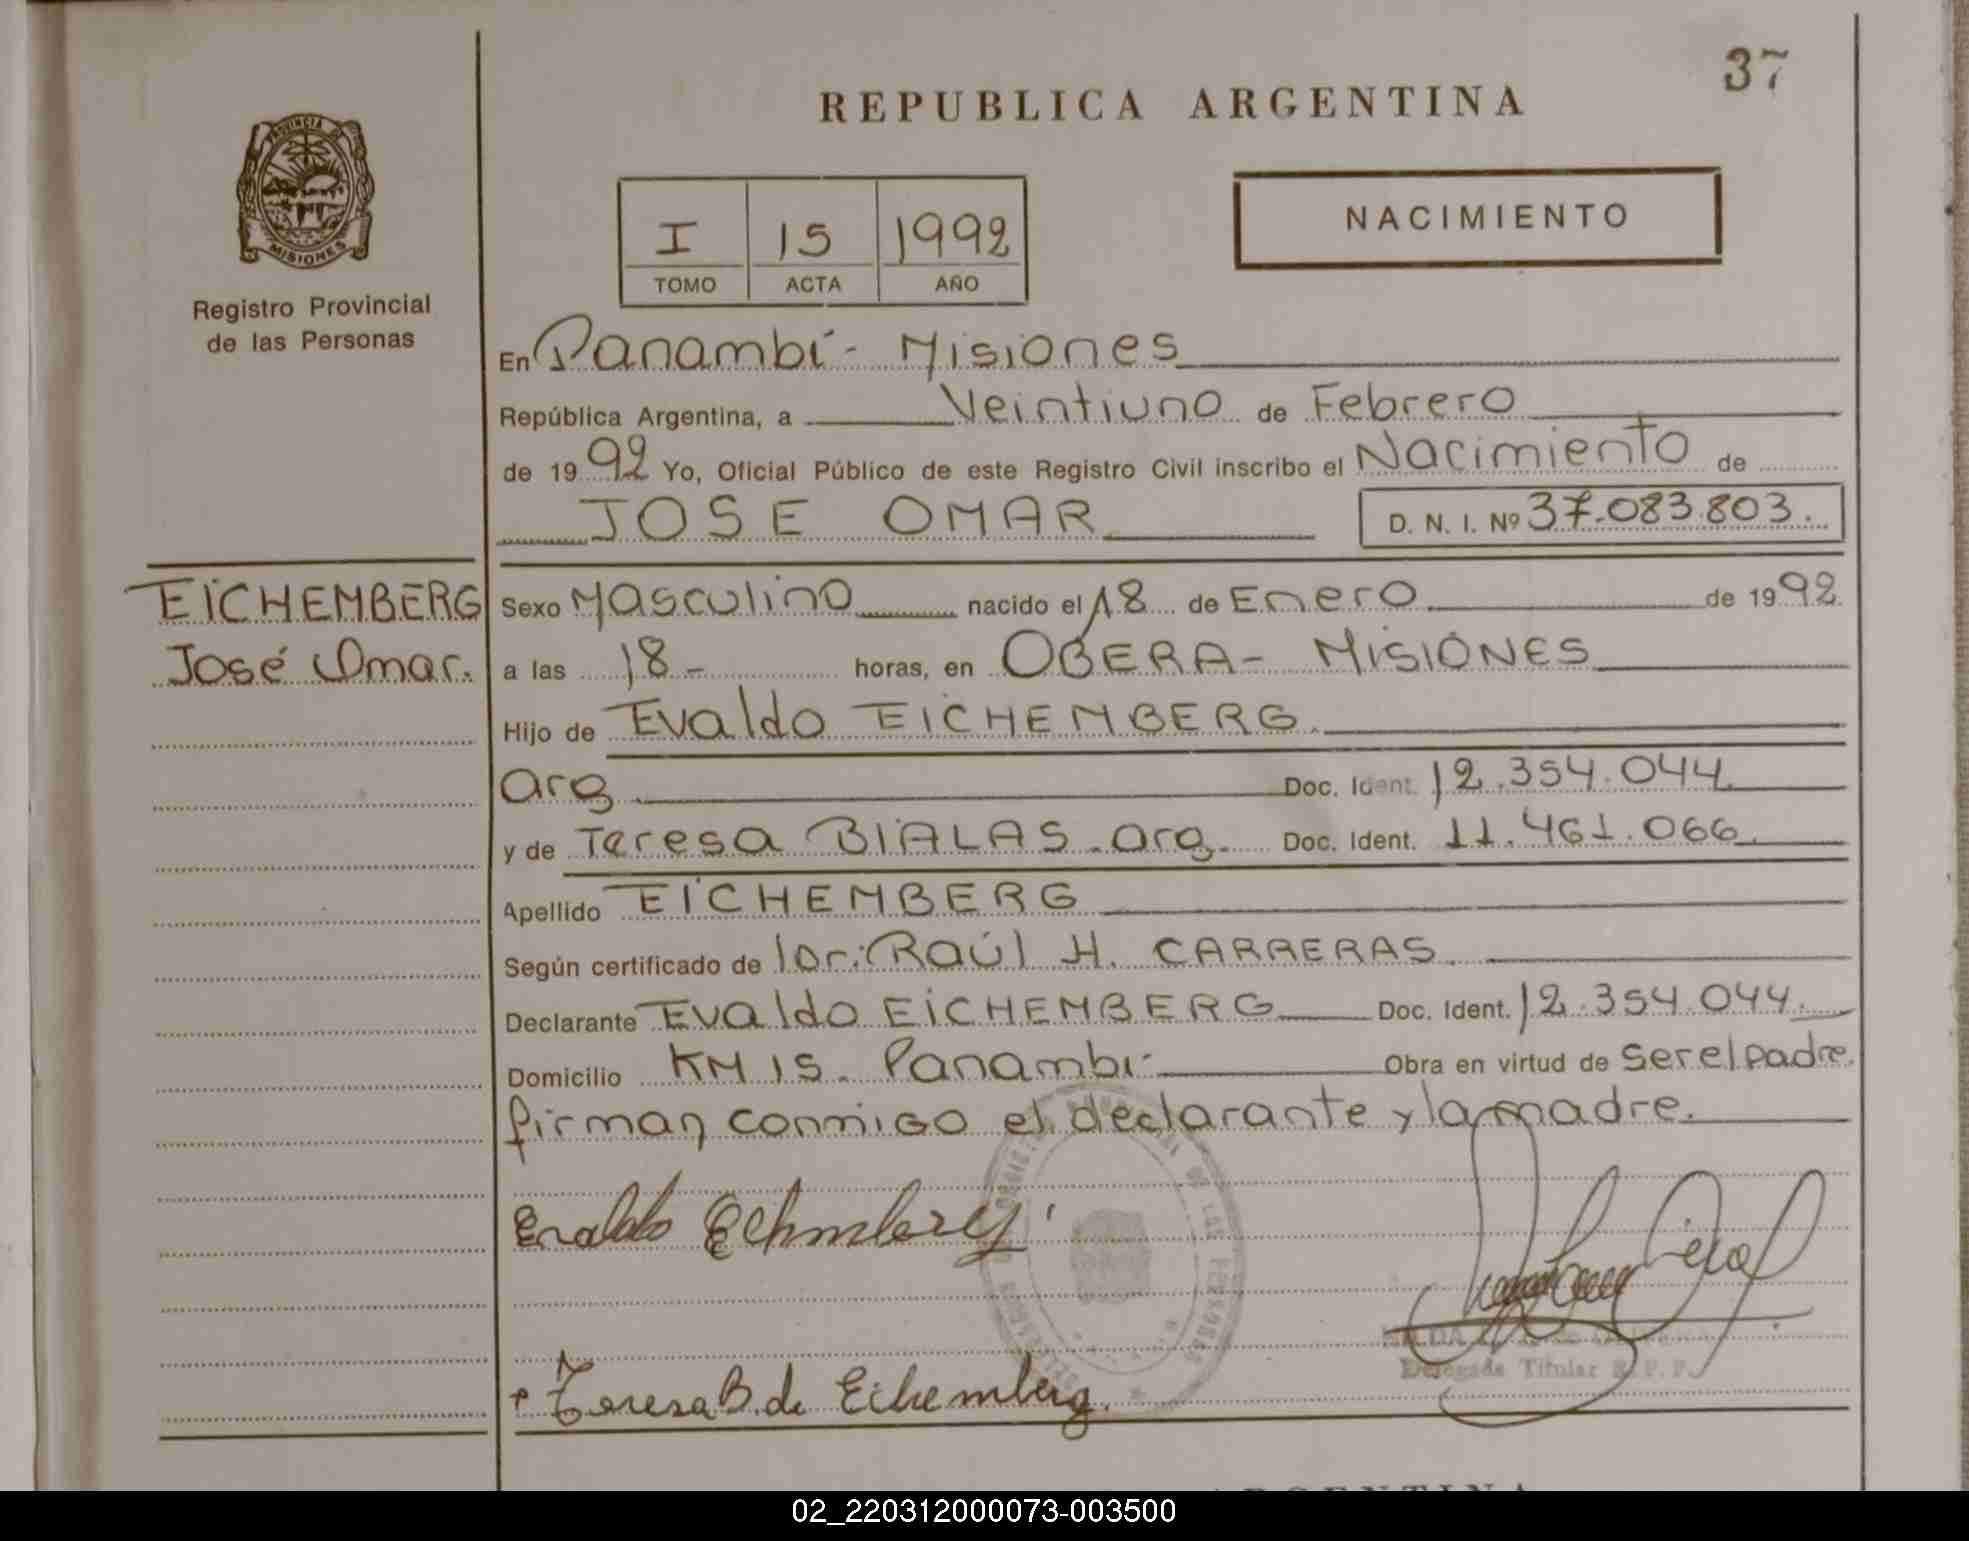 37
REPUBLICA ARGENTINA
PROVINCIA DE
MISIONES
Registro Provincial
de las Personas
I 15 1992
TOMO ACTA AÑO
NACIMIENTO
En Panambí - Misiones
República Argentina, a Veintiuno de Febrero
de 1992 Yo, Oficial Público de este Registro Civil inscribo el Nacimiento de
JOSE OMAR D. N. I. Nº 37.083.803.
EICHEMBERG
José Omar.
Sexo Masculino nacido el 18 de Enero de 1992
a las 18- horas, en OBERA- MISIONES
Hijo de Evaldo EICHEMBERG.
arg Doc. Ident. 12.354.044
y de Teresa BIALAS. arg. Doc. Ident. 11.461.066.
Apellido EICHEMBERG
Según certificado de Raúl H. CARRERAS.
Declarante Evaldo EICHEMBERG Doc. Ident. 12.354.044.
Domicilio KM 15. Panambí Obra en virtud de ser el padre.
firman conmigo el declarante y la madre.
Teresa B. de Eichemberg.
Delegada Titular R.P.P.
ARGENTINA
02_220312000073-003500